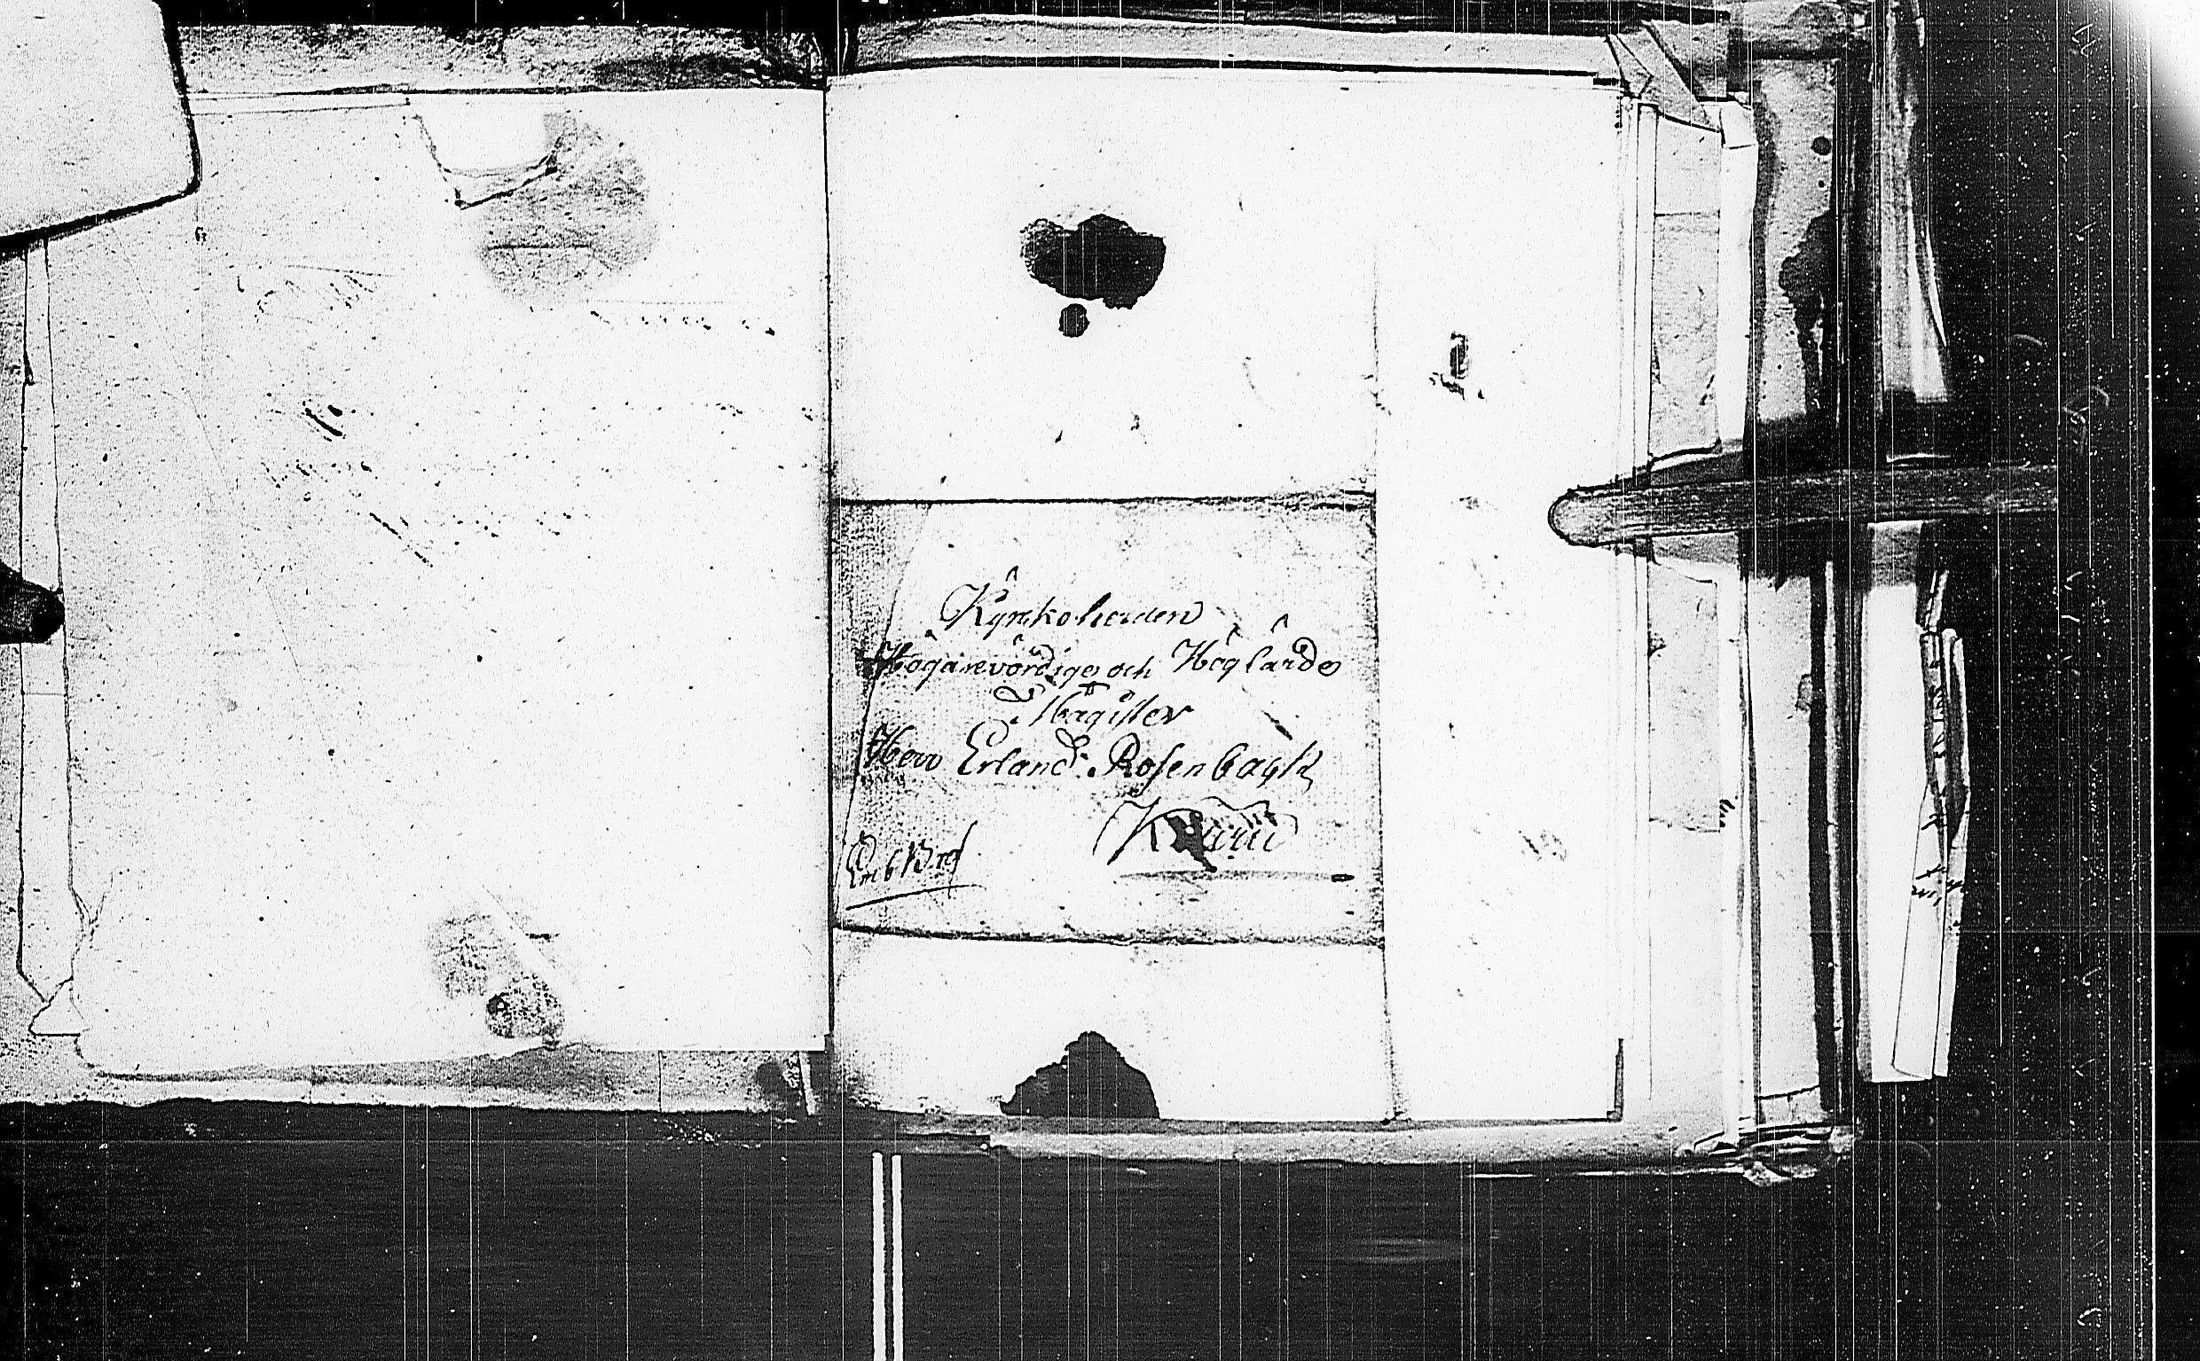 Kyrkoherden
Högärevördige och Höglärde
Magister
Herr Erland: Rosenback
Emb Bref